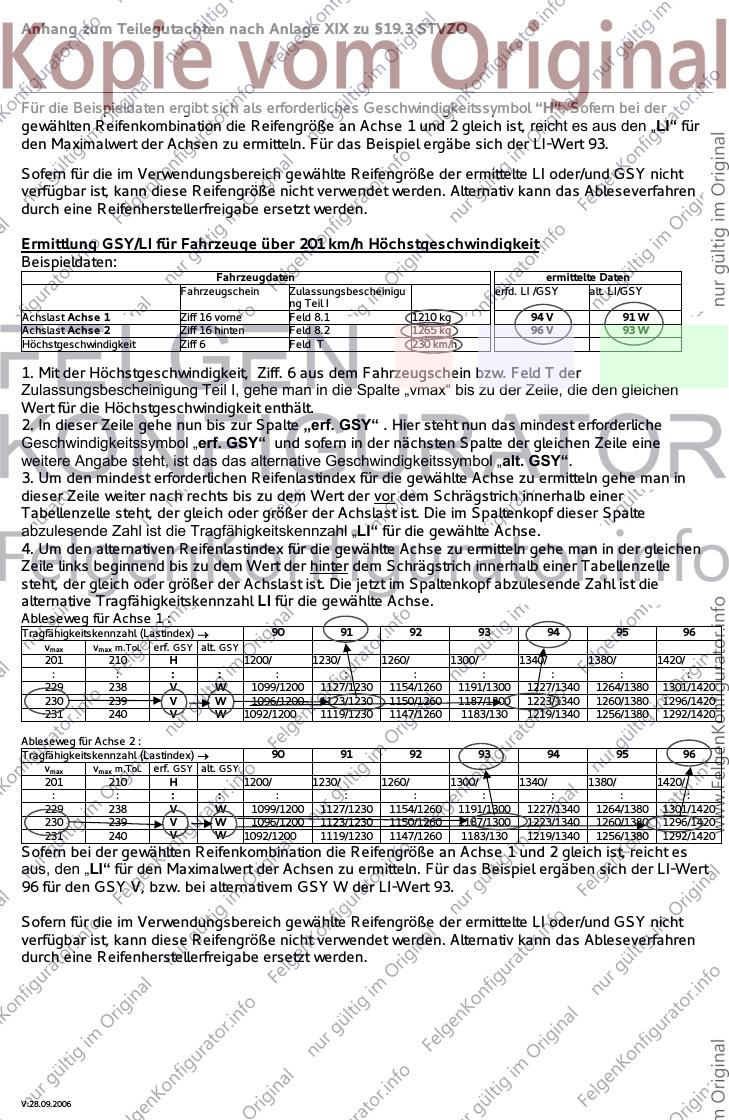 Anhang zum Teilegutachten nach Anlage XIX zu §19.3 STVZO
Kopie vom Original
Für die Beispieldaten ergibt sich als erforderliches Geschwindigkeitssymbol “H”. Sofern bei der
gewählten Reifenkombination die Reifengröße an Achse 1 und 2 gleich ist, reicht es aus den „LI“ für
den Maximalwert der Achsen zu ermitteln. Für das Beispiel ergäbe sich der LI-Wert 93.
Sofern für die im Verwendungsbereich gewählte Reifengröße der ermittelte LI oder/und GSY nicht
verfügbar ist, kann diese Reifengröße nicht verwendet werden. Alternativ kann das Ableseverfahren
durch eine Reifenherstellerfreigabe ersetzt werden.
Ermittlung GSY/LI für Fahrzeuge über 201 km/h Höchstgeschwindigkeit
Beispieldaten:
Fahrzeugdaten ermittelte Daten
Fahrzeugschein Zulassungsbescheinigu erfd. LI /GSY alt. LI/GSY
ng Teil I
Achslast Achse 1 Ziff 16 vorne Feld 8.1 1210 kg 94 V 91 W
Achslast Achse 2 Ziff 16 hinten Feld 8.2 1265 kg 96 V 93 W
Höchstgeschwindigkeit Ziff 6 Feld T 230 km/h
1. Mit der Höchstgeschwindigkeit, Ziff. 6 aus dem Fahrzeugschein bzw. Feld T der
Zulassungsbescheinigung Teil I, gehe man in die Spalte „vmax“ bis zu der Zeile, die den gleichen
Wert für die Höchstgeschwindigkeit enthält.
2. In dieser Zeile gehe nun bis zur Spalte „erf. GSY“ . Hier steht nun das mindest erforderliche
Geschwindigkeitssymbol „erf. GSY“ und sofern in der nächsten Spalte der gleichen Zeile eine
weitere Angabe steht, ist das das alternative Geschwindigkeitssymbol „alt. GSY“.
3. Um den mindest erforderlichen Reifenlastindex für die gewählte Achse zu ermitteln gehe man in
dieser Zeile weiter nach rechts bis zu dem Wert der vor dem Schrägstrich innerhalb einer
Tabellenzelle steht, der gleich oder größer der Achslast ist. Die im Spaltenkopf dieser Spalte
abzulesende Zahl ist die Tragfähigkeitskennzahl „LI“ für die gewählte Achse.
4. Um den alternativen Reifenlastindex für die gewählte Achse zu ermitteln gehe man in der gleichen
Zeile links beginnend bis zu dem Wert der hinter dem Schrägstrich innerhalb einer Tabellenzelle
steht, der gleich oder größer der Achslast ist. Die jetzt im Spaltenkopf abzulesende Zahl ist die
alternative Tragfähigkeitskennzahl LI für die gewählte Achse.
Ableseweg für Achse 1 :
Tragfähigkeitskennzahl (Lastindex) → 90 91 92 93 94 95 96
vmax vmax m.Tol. erf. GSY alt. GSY
201 210 H 1200/ 1230/ 1260/ 1300/ 1340/ 1380/ 1420/
: : : : : : : : : : :
229 238 V W 1099/1200 1127/1230 1154/1260 1191/1300 1227/1340 1264/1380 1301/1420
230 239 V W 1096/1200 1123/1230 1150/1260 1187/1300 1223/1340 1260/1380 1296/1420
231 240 V W 1092/1200 1119/1230 1147/1260 1183/130 1219/1340 1256/1380 1292/1420
Ableseweg für Achse 2 :
Tragfähigkeitskennzahl (Lastindex) → 90 91 92 93 94 95 96
vmax vmax m.Tol. erf. GSY alt. GSY
201 210 H 1200/ 1230/ 1260/ 1300/ 1340/ 1380/ 1420/
: : : : : : : : : : :
229 238 V W 1099/1200 1127/1230 1154/1260 1191/1300 1227/1340 1264/1380 1301/1420
230 239 V W 1096/1200 1123/1230 1150/1260 1187/1300 1223/1340 1260/1380 1296/1420
231 240 V W 1092/1200 1119/1230 1147/1260 1183/130 1219/1340 1256/1380 1292/1420
Sofern bei der gewählten Reifenkombination die Reifengröße an Achse 1 und 2 gleich ist, reicht es
aus, den „LI“ für den Maximalwert der Achsen zu ermitteln. Für das Beispiel ergäben sich der LI-Wert
96 für den GSY V, bzw. bei alternativem GSY W der LI-Wert 93.
Sofern für die im Verwendungsbereich gewählte Reifengröße der ermittelte LI oder/und GSY nicht
verfügbar ist, kann diese Reifengröße nicht verwendet werden. Alternativ kann das Ableseverfahren
durch eine Reifenherstellerfreigabe ersetzt werden.
V:28.09.2006
FELGEN
KONFIGURATOR
FelgenKonfigurator.info
nur gültig im Original
www.FelgenKonfigurator.info